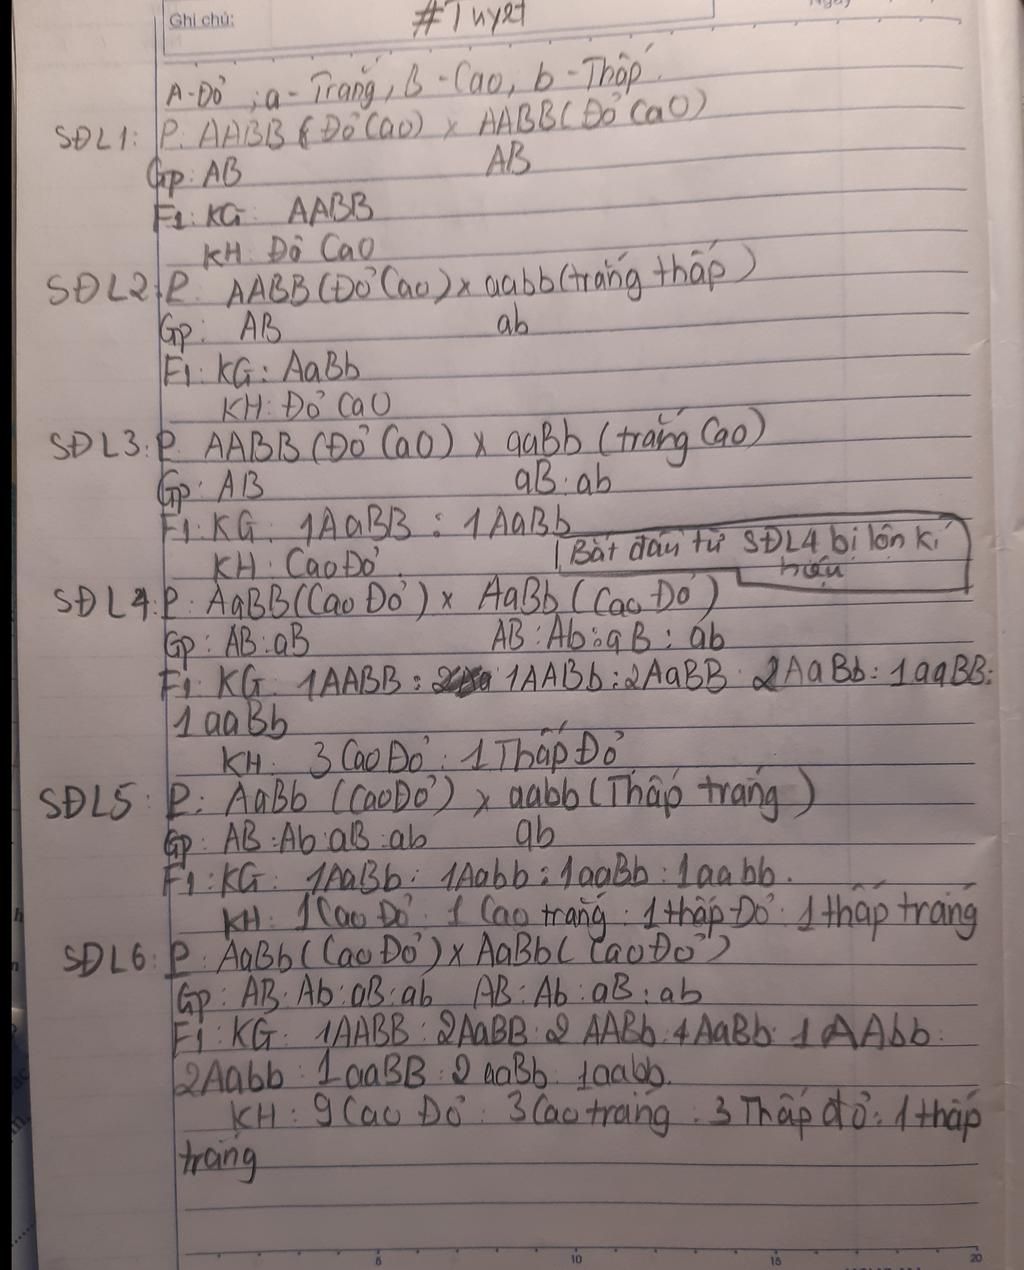 Ghi chú:
#Tuyết
A-Đỏ, a-Trắng, B-Cao, b-Thấp.
SĐL1: P: AABB (Đỏ Cao) x AABB (Đỏ Cao)
Gp: AB AB
F1: KG: AABB
KH: Đỏ Cao
SĐL2: P: AABB (Đỏ Cao) x aabb (trắng thấp)
Gp: AB ab
F1: KG: AaBb
KH: Đỏ Cao
SĐL3: P: AABB (Đỏ Cao) x aaBb (trắng Cao)
Gp: AB aB:ab
F1: KG: 1AaBB : 1AaBb
KH: Cao Đỏ.
Bắt đầu từ SĐL4 bị lộn kí
hiệu
SĐL4: P: AaBB (Cao Đỏ) x AaBb (Cao Đỏ)
Gp: AB:aB AB:Ab:aB:ab
F1: KG: 1AABB : 1AABb : 2AaBB : 2AaBb : 1aaBB:
1aaBb
KH: 3 Cao Đỏ : 1 Thấp Đỏ
SĐL5: P: AaBb (Cao Đỏ) x aabb (Thấp trắng)
Gp: AB:Ab:aB:ab ab
F1: KG: 1AaBb : 1Aabb : 1aaBb : 1aabb.
KH: 1 Cao Đỏ : 1 Cao trắng : 1 thấp Đỏ : 1 thấp trắng
SĐL6: P: AaBb (Cao Đỏ) x AaBb (Cao Đỏ)
Gp: AB:Ab:aB:ab AB:Ab:aB:ab
F1: KG: 1AABB : 2AaBB : 2AABb : 4AaBb : 1AAbb :
2Aabb : 1aaBB : 2aaBb : 1aabb.
KH: 9 Cao Đỏ : 3 Cao trắng : 3 Thấp đỏ : 1 thấp
trắng
5 10 15 20